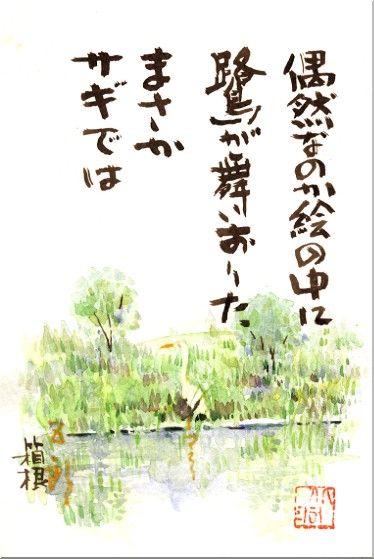 偶然なのか絵の中に
鷺が舞いおりた
まさか
サギでは